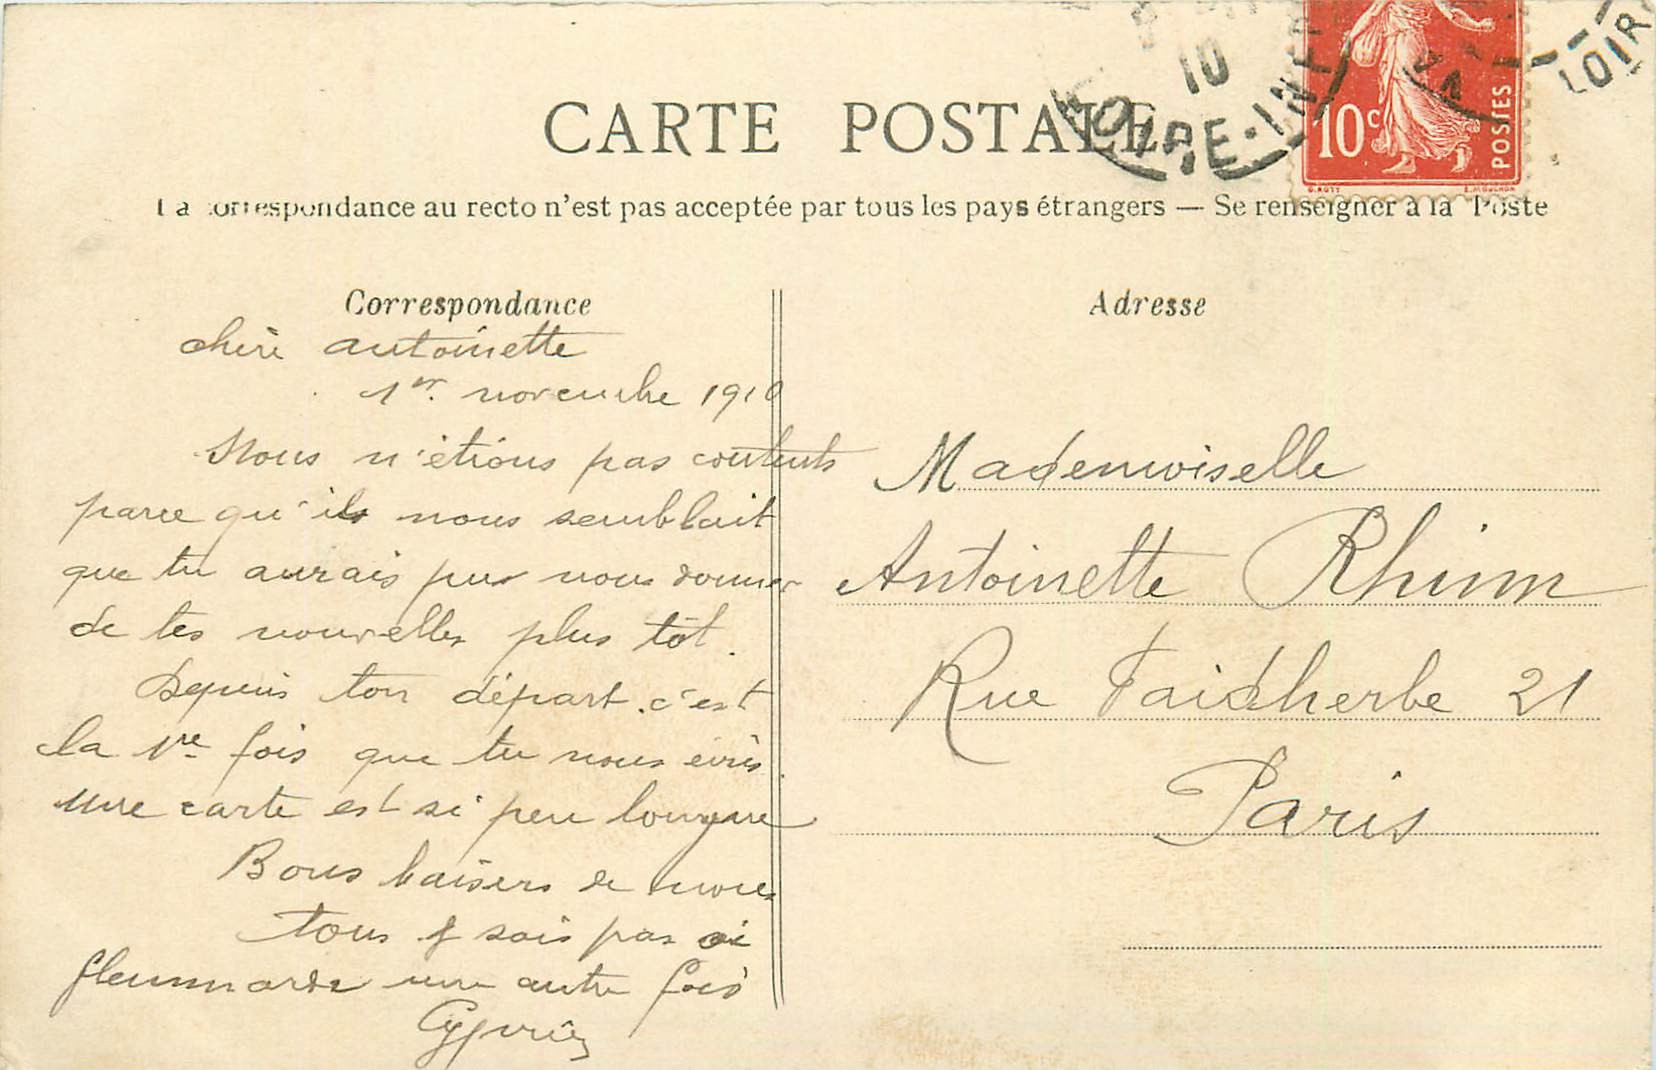 CARTE POSTALE
La correspondance au recto n'est pas acceptée par tous les pays étrangers — Se renseigner à la Poste
10
LOIRE-INF
10c
POSTES
O. ROTY
E. MOUCHON
LOIR
Correspondance
chère antoinette
1er. novembre 1910
Nous n'étions pas contents
parce qu'ils nous semblait
que tu aurais pus nous donner
de tes nouvelles plus tôt.
Depuis ton départ c'est
la 1re fois que tu nous écris
une carte est si peu longue
Bons baisers de nous
tous & sois pas si
flemmarde une autre fois
Cyprien
Adresse
Mademoiselle
Antoinette Rhimm
Rue Faidherbe 21
Paris